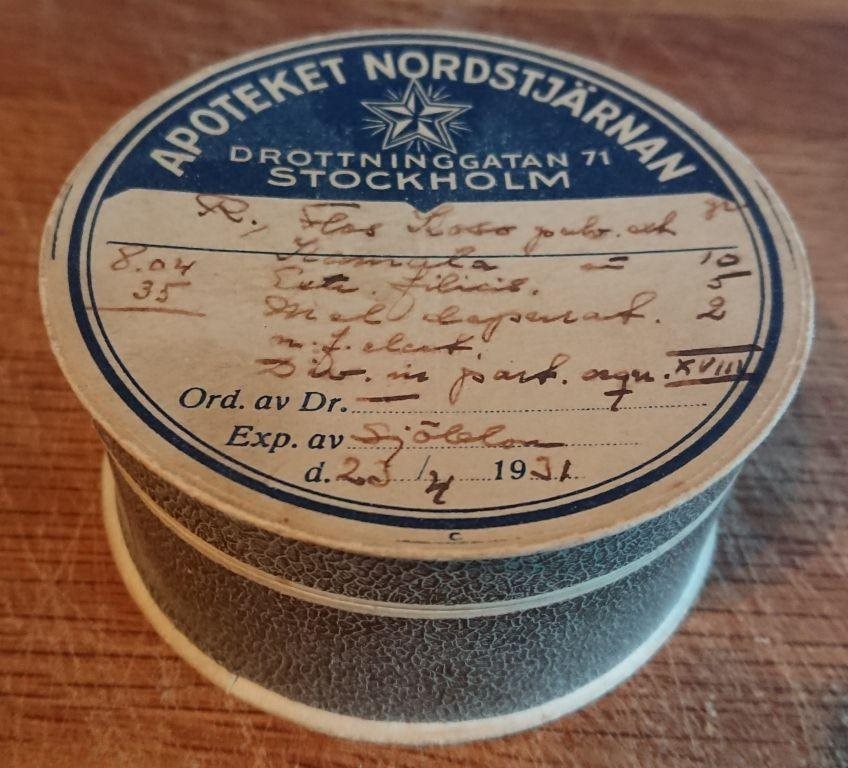 APOTEKET NORDSTJÄRNAN
DROTTNINGGATAN 71
STOCKHOLM
R., Flos Koso pulv. och gr
8.04 Kamala aa 10
35 Extr. filicis. 5
Mel depurat. 2
m. f. elect.
Div. in part. aequ. XVIII
Ord. av Dr. —
Exp. av
d. 23/4 1931
C